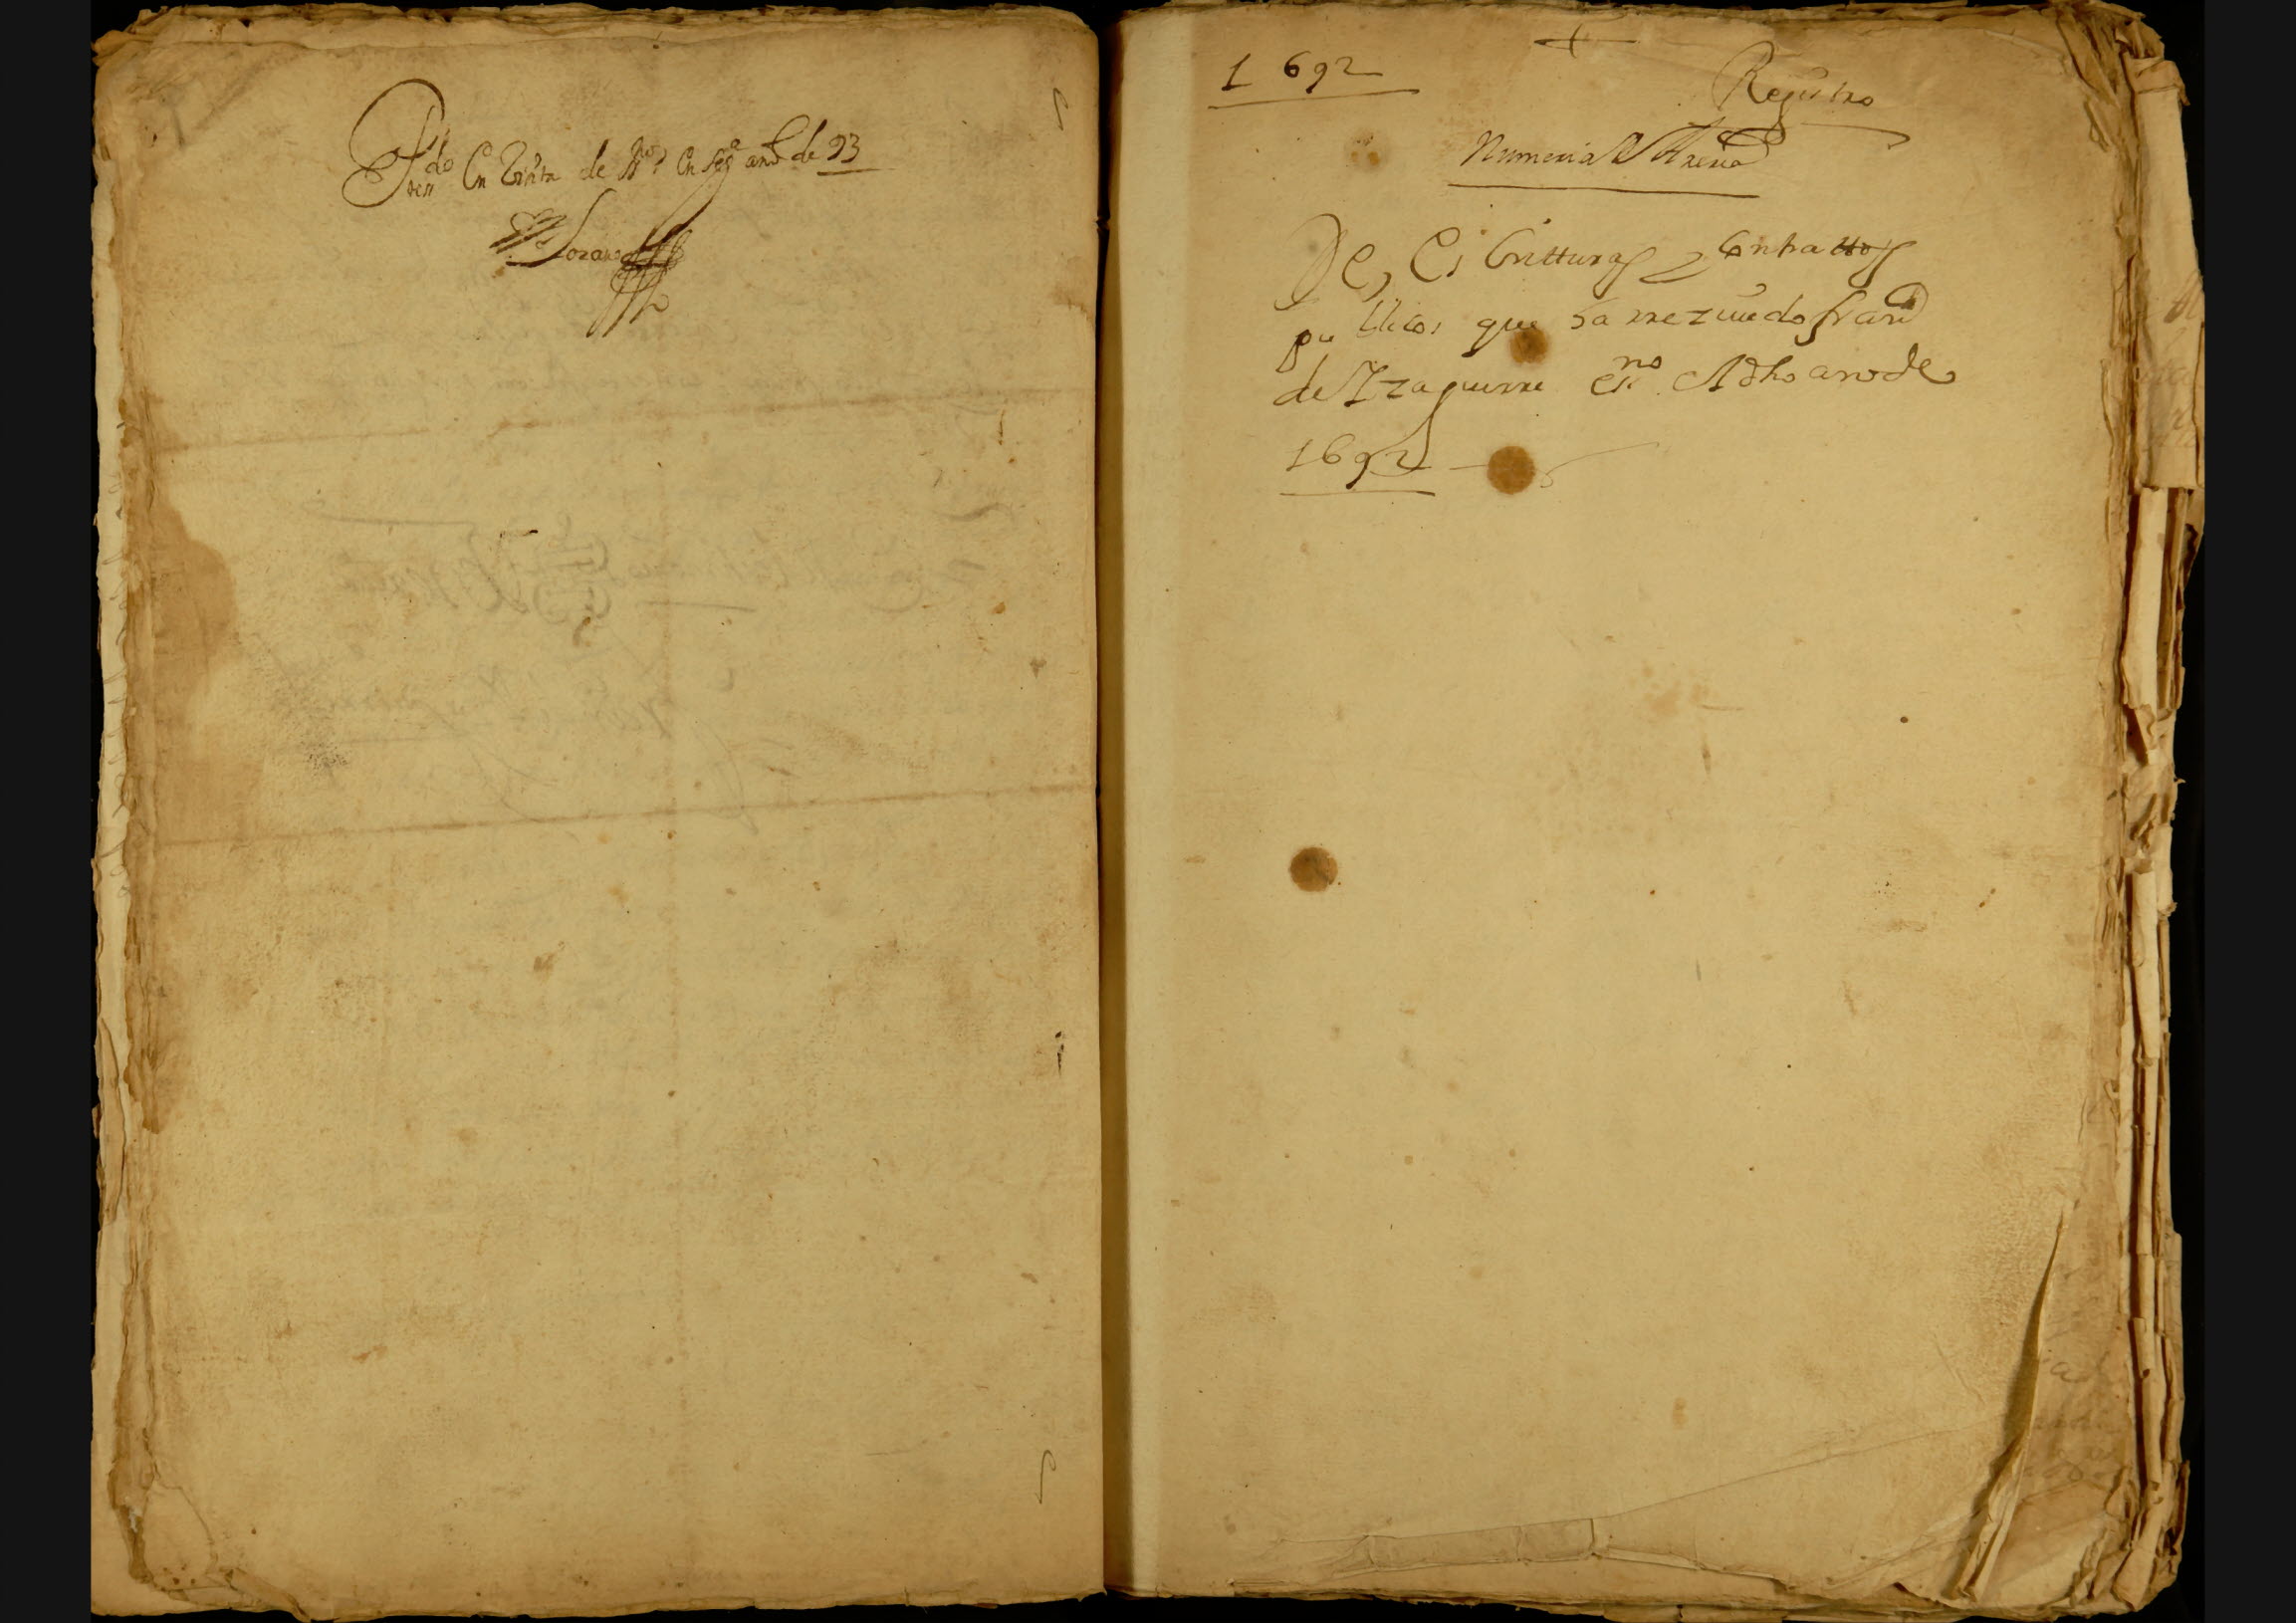 en de en seg.e año de 93
Lozano
1692
Registro
Numeria
De escritturas y contrattos
publicos que ha rreziuido fran.co
de Yzaguirre esno. dho año de
1692